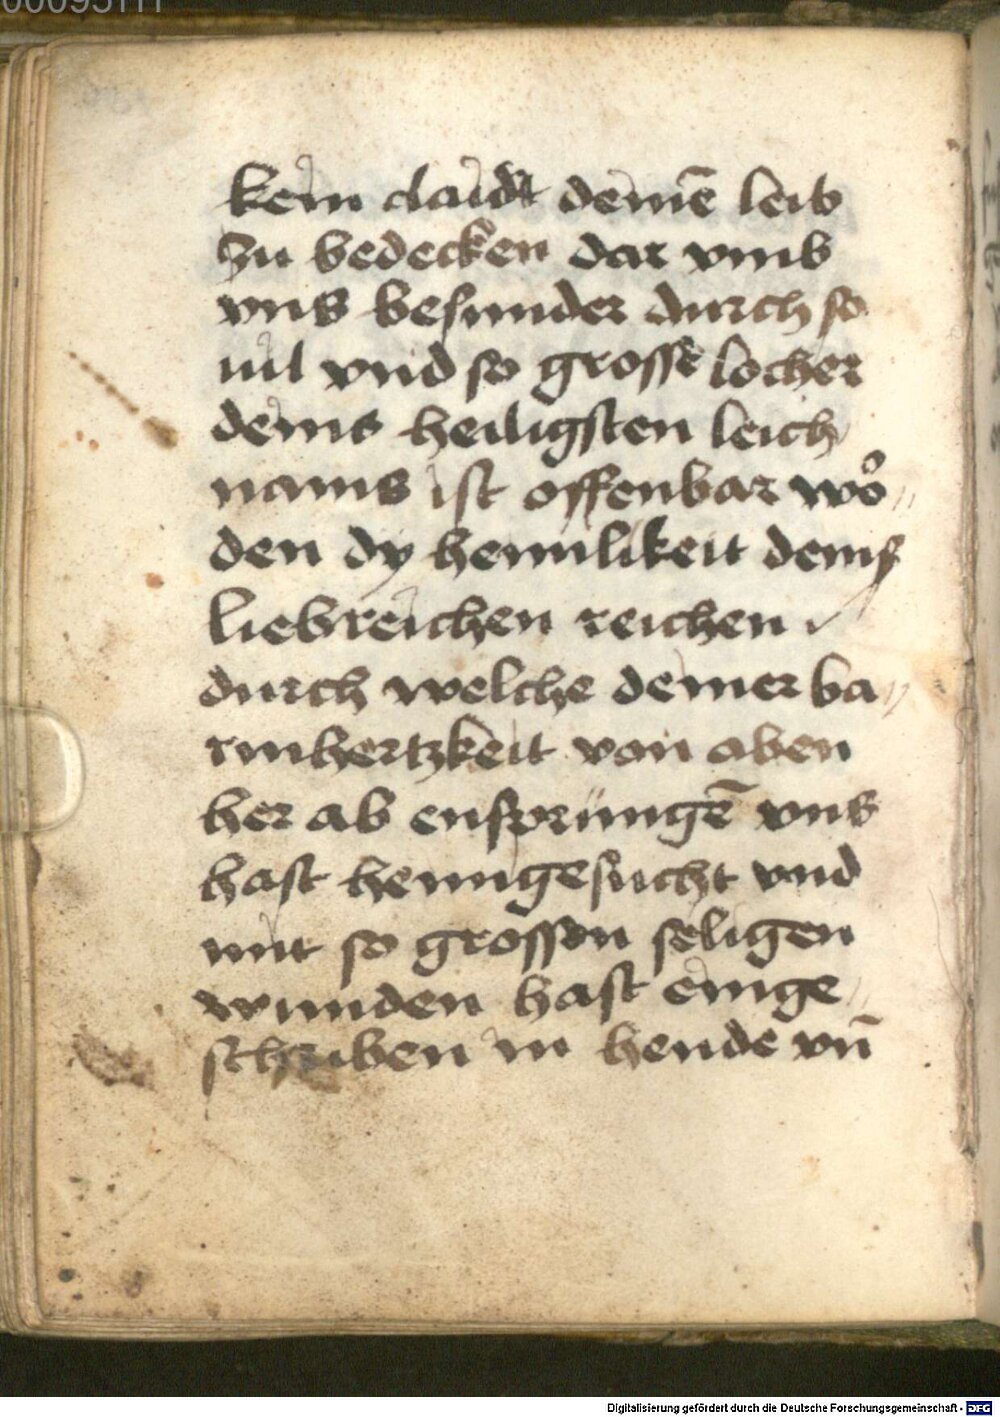 kein claidt deinē leib
zu bedecken dar vmb
vns besunder durch so
uil vnd so grosse locher
deins heiligsten leich
nams ist offenbar wo͛
den dy heimlikeit deins
liebreichen reichen
durch welche deiner ba
rmhertzkeit von oben
her ab ensprungē vns
hast heimgesucht vnd
mit so grossen seligen
wunden hast einge
schriben in hende vn̄
Digitalisierung gefördert durch die Deutsche Forschungsgemeinschaft - DFG